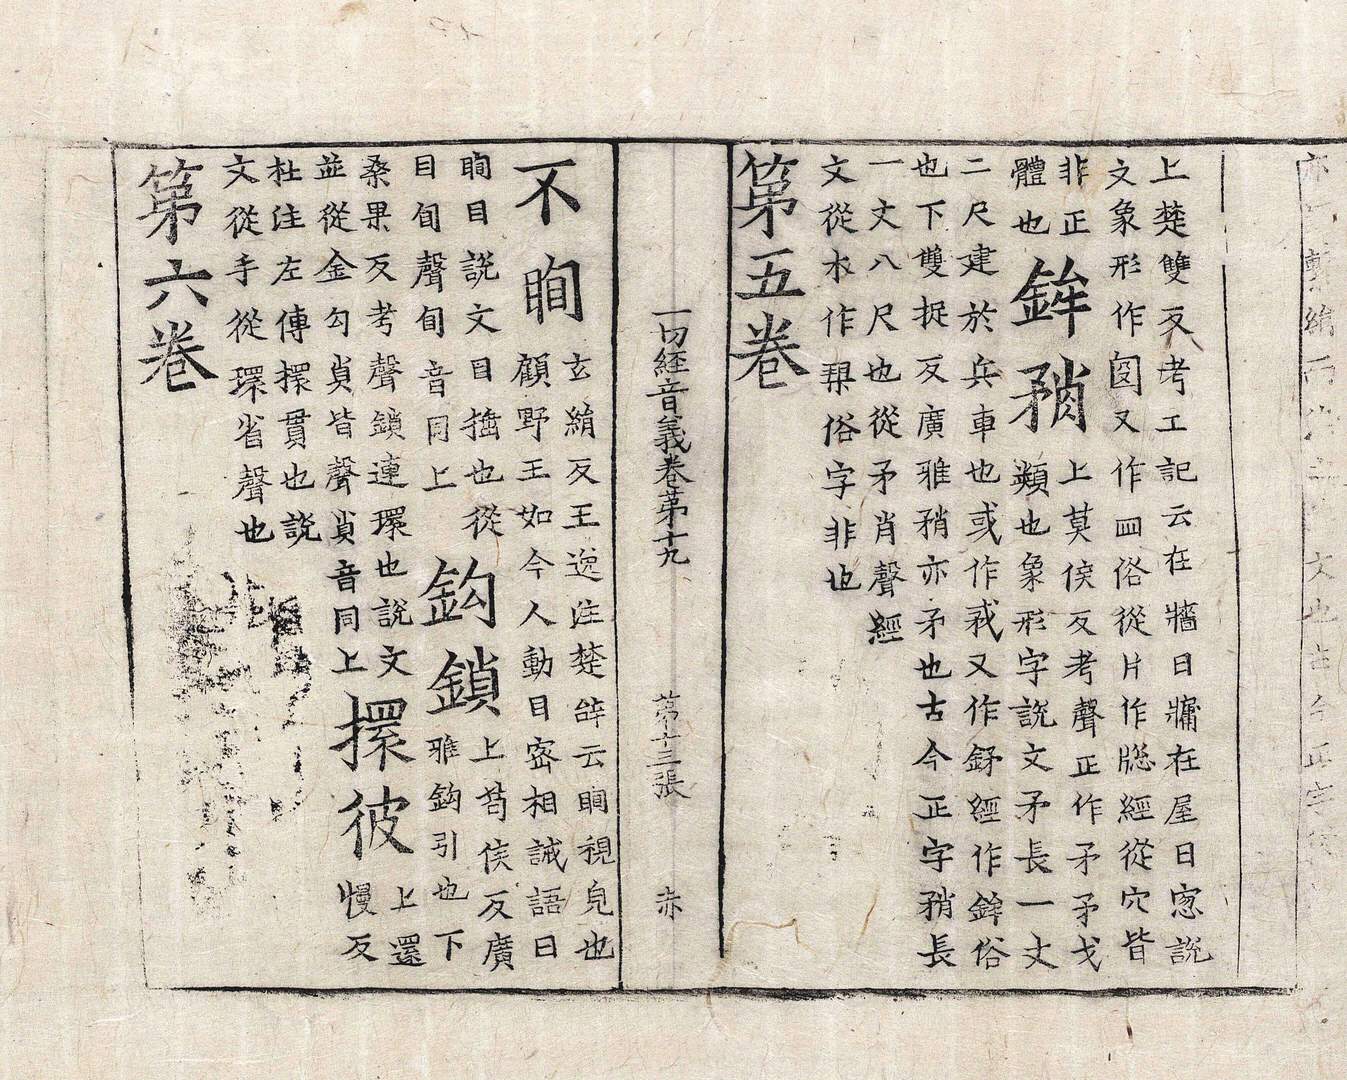 上楚雙反考工記云在牆曰牖在屋曰窓說
文象形作囪又作四俗從片作牎經從穴皆
非正
體也
鉾矟
上莫侯反考聲正作矛矛戈
類也象形字說文矛長一丈
二尺建於兵車也或作𢦧又作䤬經作鉾俗
也下雙捉反廣雅矟亦矛也古今正字矟長
一丈八尺也從矛肖聲經
文從木作槊俗字非也
第五卷
一切經音義卷第十九
第十三張
赤
不眴
玄絹反王逸注楚辝云眴視皃也
顧野王如今人動目密相誡語曰
眴目說文目搖也從
目旬聲旬音同上
鈎鎖
上苟侯反廣
雅鈎引也下
桑果反考聲鎖連環也說文
並從金勾𧴪皆聲𧴪音同上
擐彼
上還
慢反
杜注左傳擐貫也說
文從手從環省聲也
第六卷